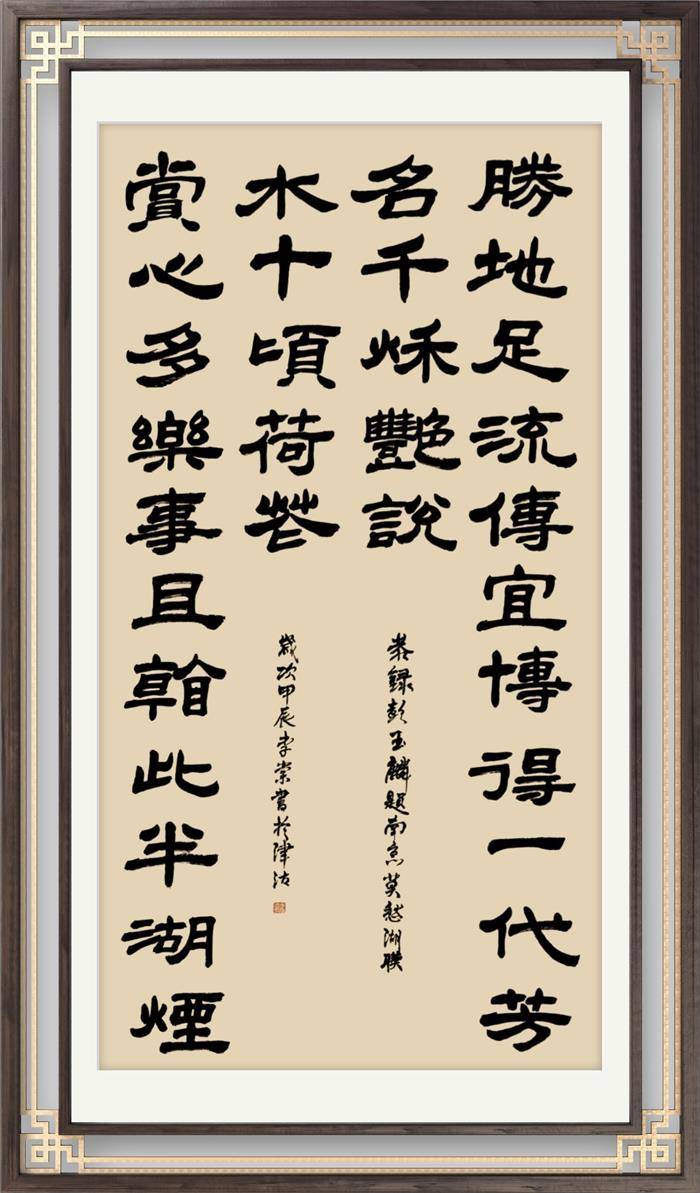 勝地足流傳宜博得一代芳
名千秌艷說
恭錄彭玉麟題南京莫愁湖聯
賞心多樂事且看此半湖煙
水十頃荷花
歲次甲辰李崇書於津沽